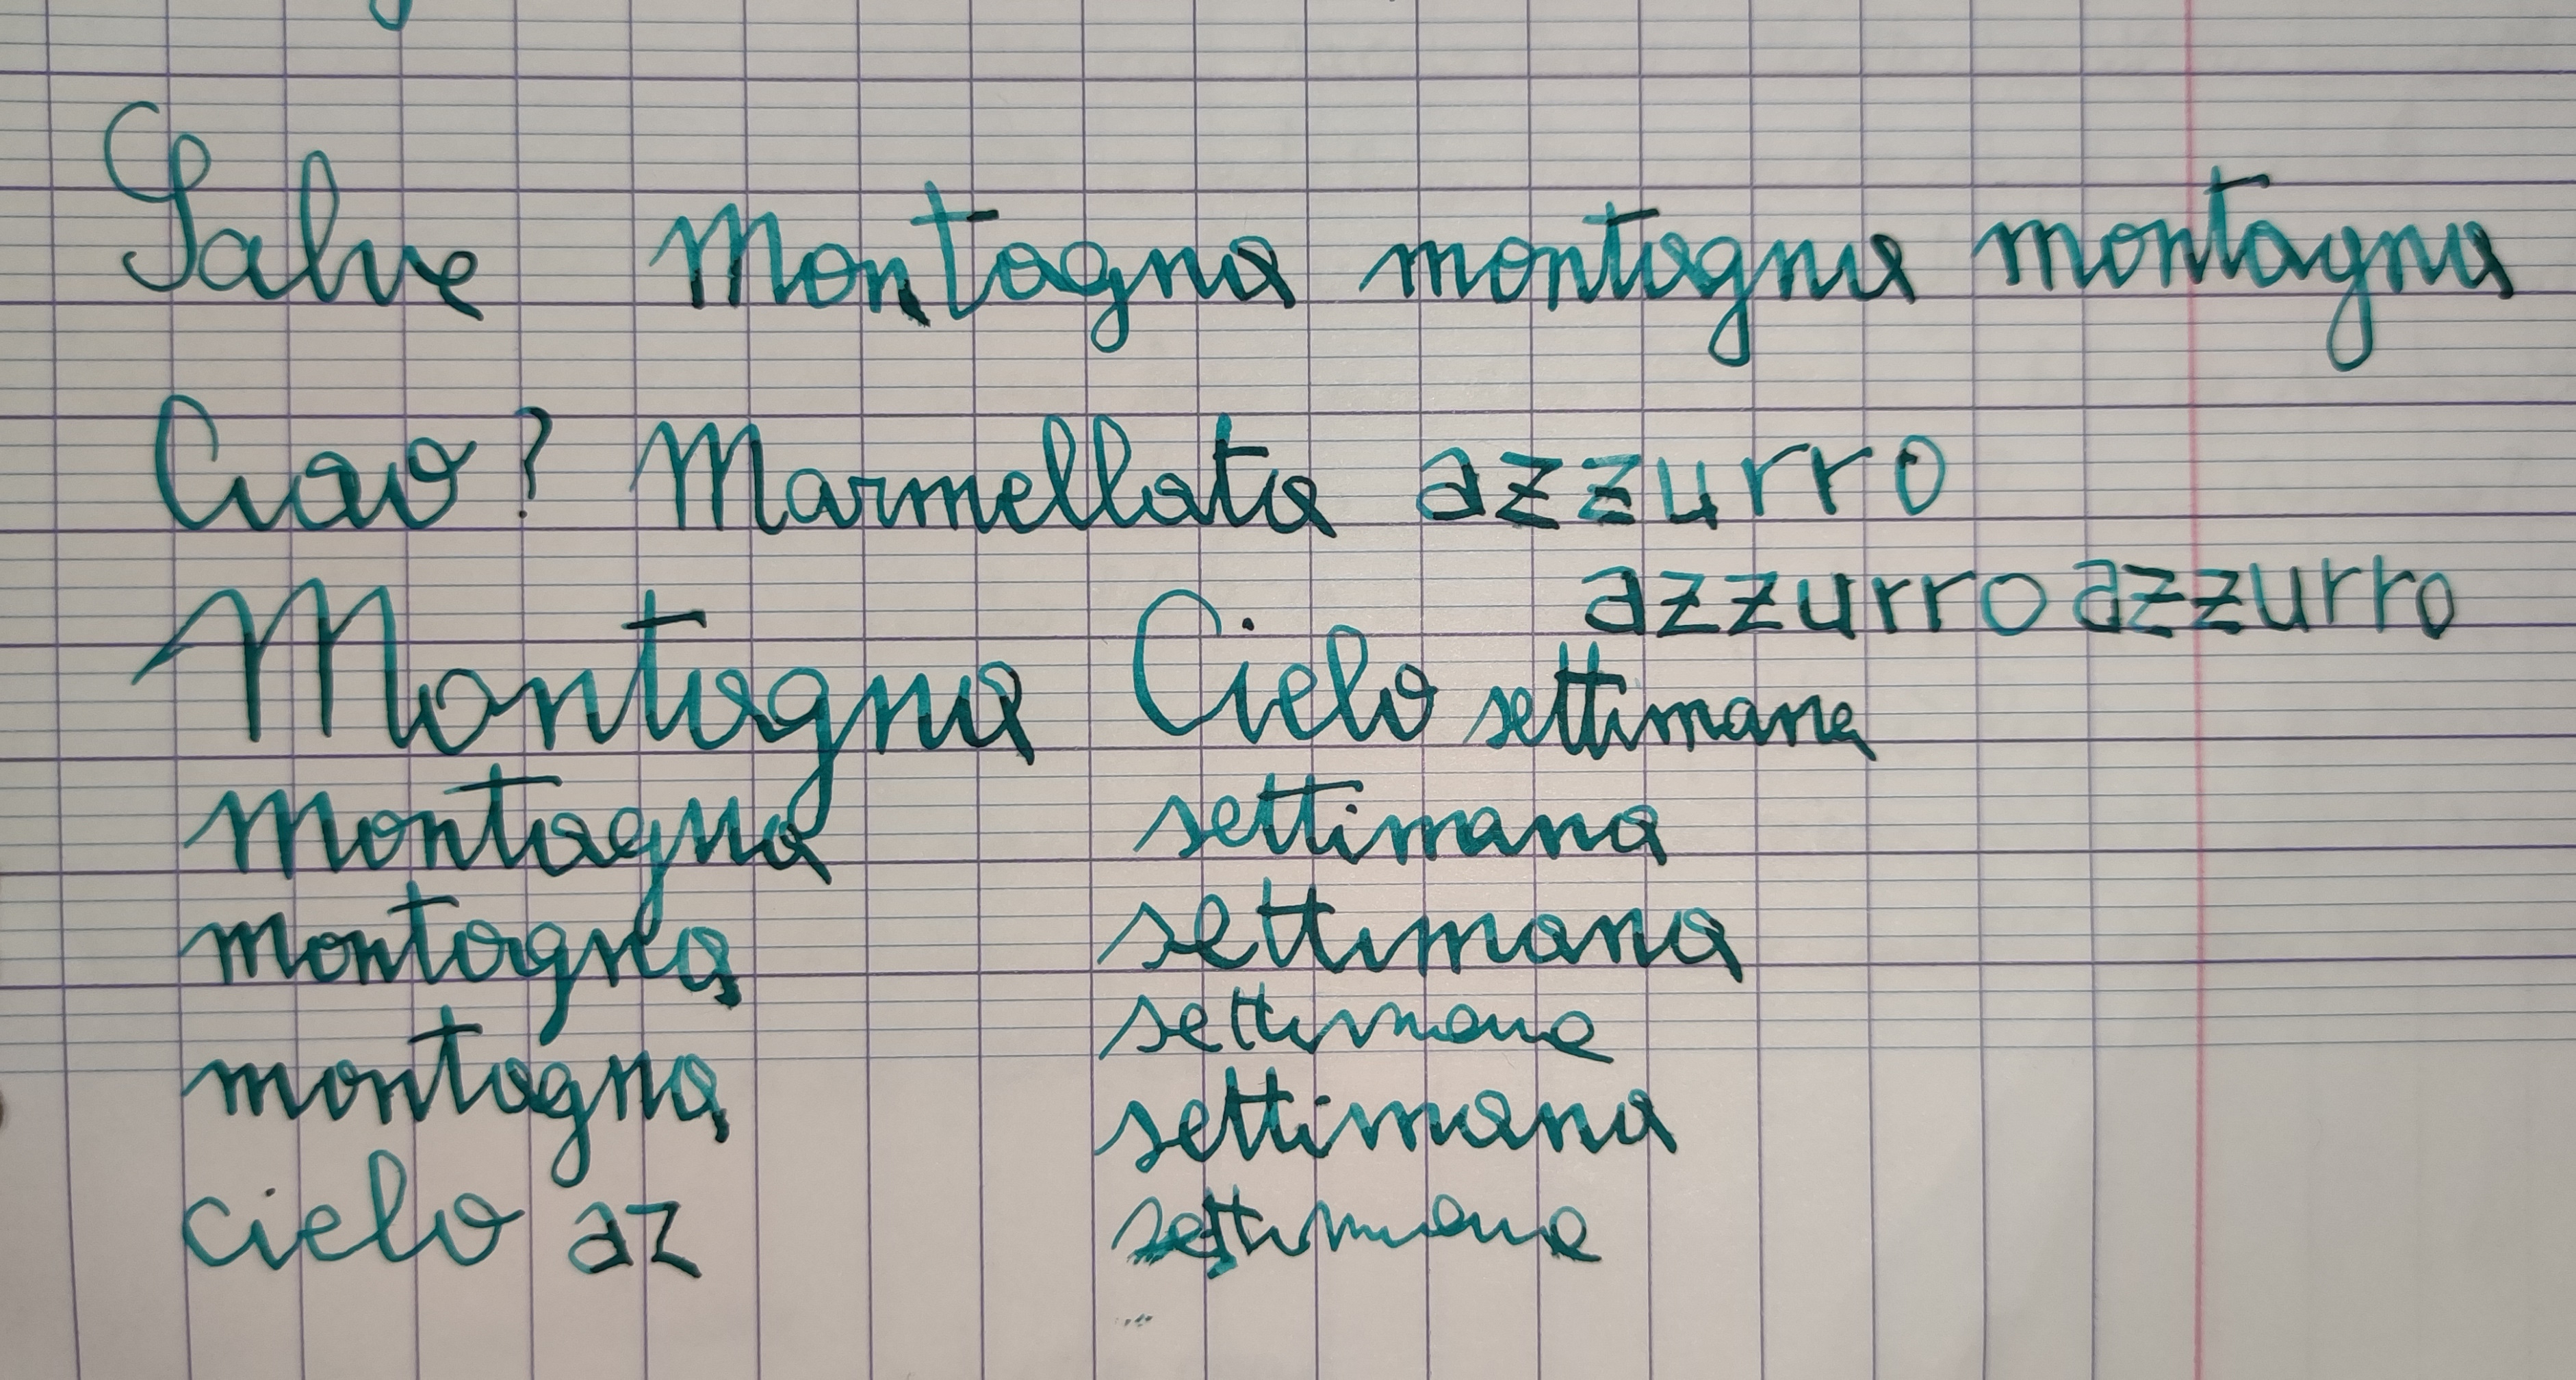 Salve Montagna montagna montagna
Ciao? Marmellata azzurro
azzurro azzurro
Montagna Cielo settimana
montagna settimana
montagna settimana
settimana
montagna settimana
cielo az settimana